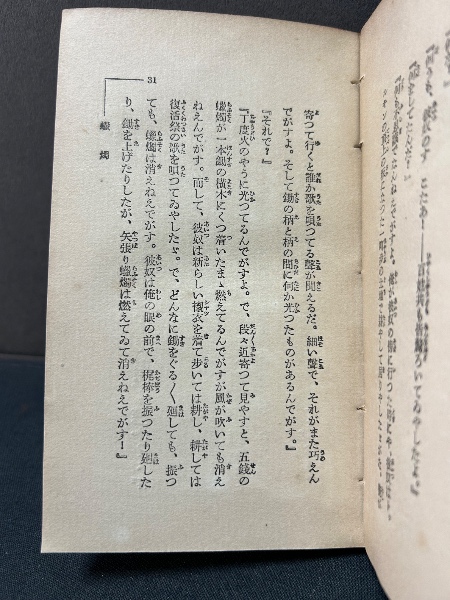 寄つて行くと誰か歌を唄つてる聲が聞えるだ。細い聲で、それがまた巧えん
でがすよ。そして鋤の柄と柄の間に何か光つたものがあるんでがす。』
『それで？』
『丁度火のやうに光つてるんでがすよ。で、段々近寄つて見やすと、五錢の
蠟燭が一本鋤の横木にくつ着いたまゝ燃えてるんでがすが風が吹いても消え
ねえんでがす。而して、彼奴は新らしい襯衣を着て歩いては耕し、耕しては
復活祭の歌を唄つてゐやしたよ。で、どんなに鋤をぐる〱廻しても、振つ
ても、蠟燭は消えねえでがす。彼奴は俺の眼の前で、梶棒を振つたり廻した
り、鋤を上げたりしたが、矢張り蠟燭は燃えてゐて消えねえでがす！』
31
蠟燭